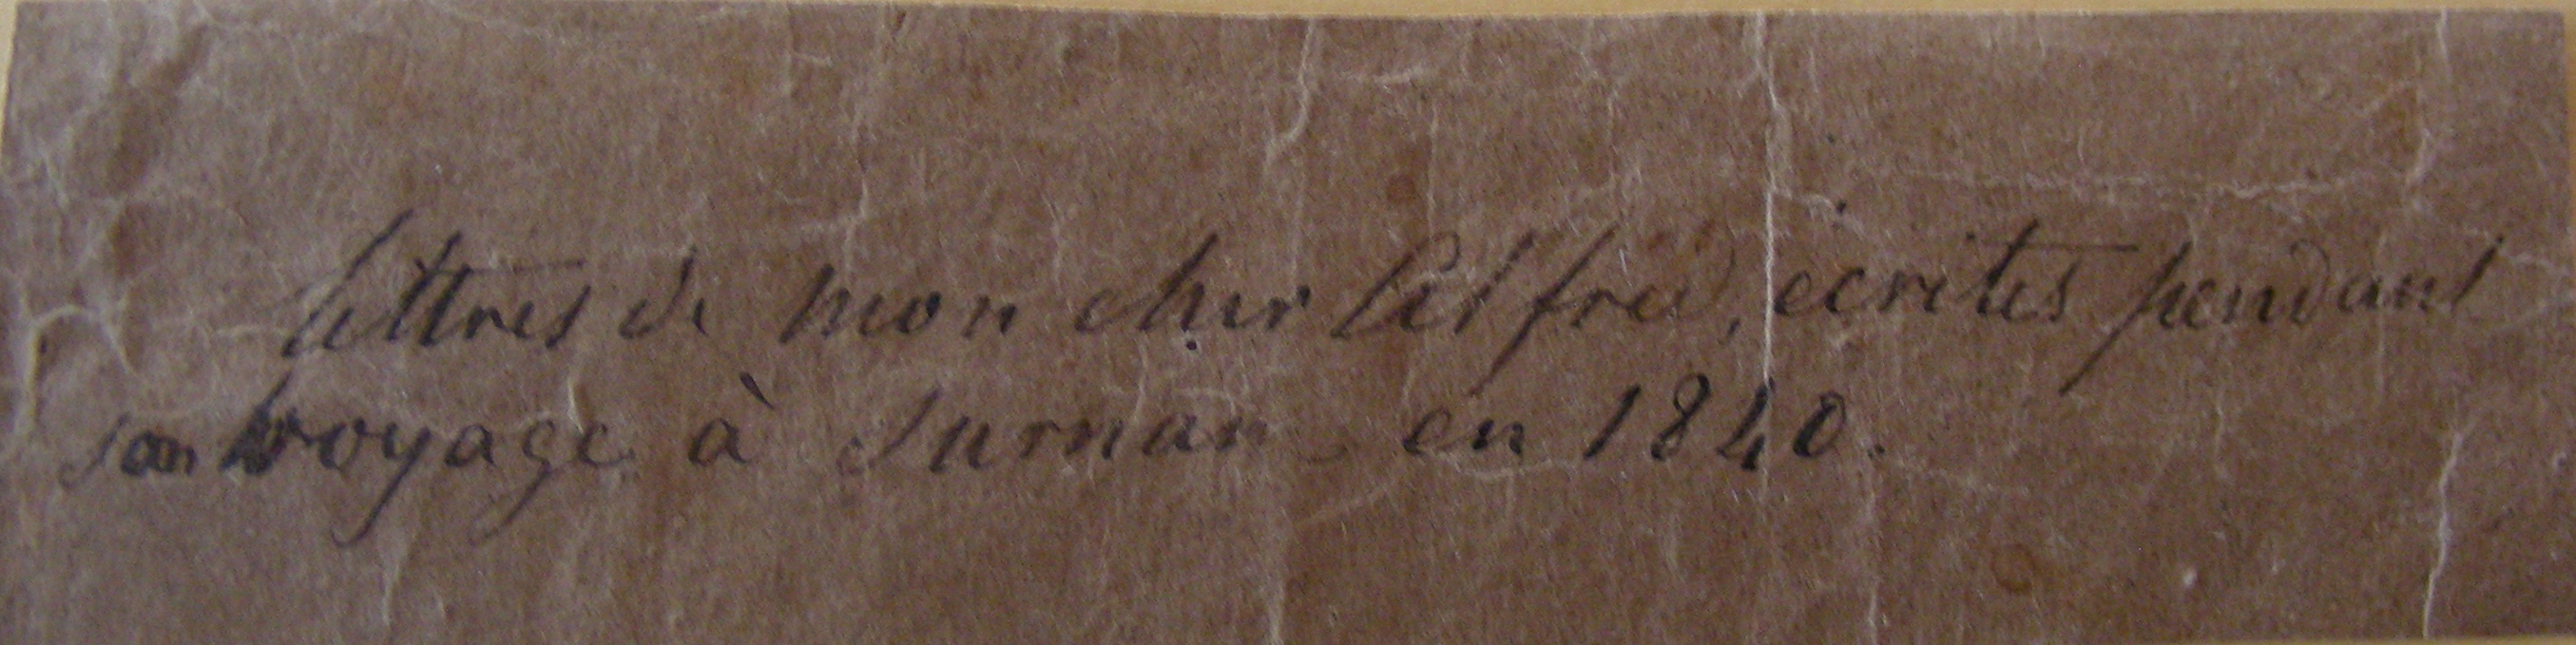 lettres de mon cher Alfred, ecrites pendant
son voyage à Surnam en 1840.